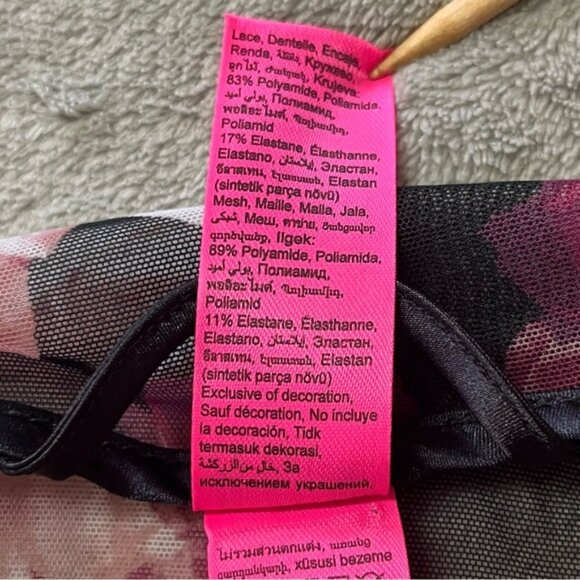 Lace, Dentelle, Encaje,
Renda, Кружево,
ลูกไม้, Ժանյակ, Krujeva:
83% Polyamide, Poliamida,
بولي أميد, Полиамид,
พอลิอะไมด์, Պոլիամիդ,
Poliamid
17% Elastane, Élasthanne,
Elastano, إيلاستان, Эластан,
อีลาสเทน, Էլաստան, Elastan
(sintetik parça növü)
Mesh, Maille, Malla, Jala,
شبكي, Меш, ตาข่าย, Ցանցավոր
գործվածք, Ilgək:
89% Polyamide, Poliamida,
بولي أميد, Полиамид,
พอลิอะไมด์, Պոլիամիդ,
Poliamid
11% Elastane, Élasthanne,
Elastano, إيلاستان, Эластан,
อีลาสเทน, Էլաստան, Elastan
(sintetik parça növü)
Exclusive of decoration,
Sauf décoration, No incluye
la decoración, Tidk
termasuk dekorasi,
خالٍ من الزركشة, За
исключением украшений,
ไม่รวมส่วนตกแต่ง, առանց
զարդանկարի, xüsusi bəzəmə